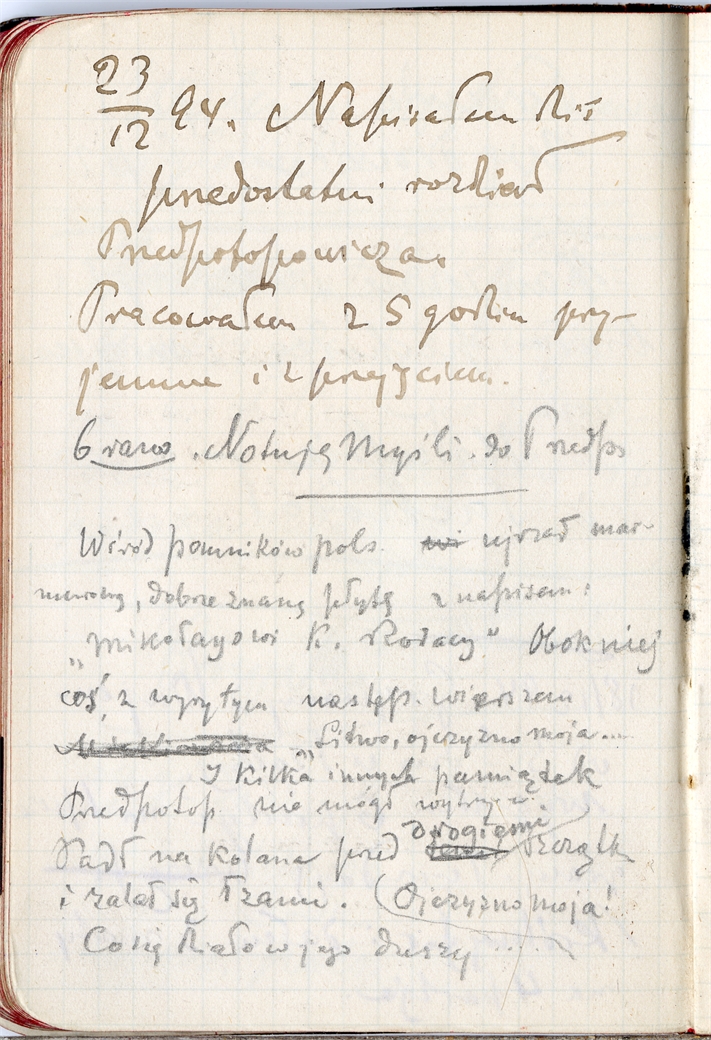 23/12 94. Napisałem dziś
przedostatni rozdział
Przedpotopowicza.
Pracowałem z 5 godzin przy-
jemnie i z przejęciem.
6 rano. Notuję myśli. do Przedpo
Wśród pomników pols. ujrzał mar-
murową, dobrze znaną płytę z napisem:
„Mikołayowi K. Rodacy" Obok niej
coś, z wyrytym następ. wierszem
„Litwo, ojczyzno moja....
I kilka innych pamiątek
Przedpotop. nie mógł wytrzym.
Padł na kolana przed drogiemi szczątk
i zalał się łzami. (Ojczyzno moja!
Co się działo w jego duszy .....